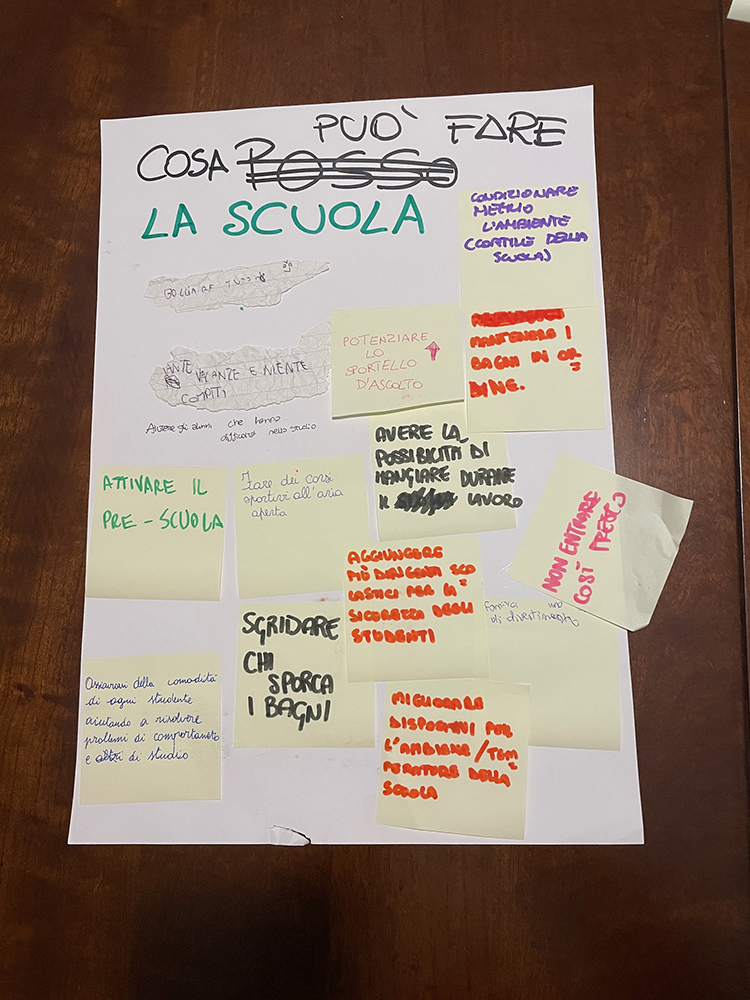 COSA PUÒ FARE
LA SCUOLA
CONDIZIONARE
MEGLIO
L'AMBIENTE
(CORTILE DELLA
SCUOLA)
POTENZIARE
LO
SPORTELLO
D'ASCOLTO
MANTENERE I
BAGNI IN OR
DINE.
VACANZE E NIENTE
COMPITI
Aiutare gli alunni che hanno
difficoltà nello studio
AVERE LA
POSSIBILITÀ DI
MANGIARE DURANTE
IL LAVORO
ATTIVARE IL
PRE-SCUOLA
Fare dei corsi
sportivi all'aria
aperta
NON ENTRARE
COSÌ PRESTO
AGGIUNGERE
PIÙ DIRIGENTI SCO
LASTICI PER LA
SICUREZZA DEGLI
STUDENTI
SGRIDARE
CHI
SPORCA
I BAGNI
di divertimento
Assicurarsi della comodità
di ogni studente
aiutando a risolvere
problemi di comportamento
e altri di studio
MIGLIORARE
DISPOSITIVI PER
L'AMBIENTE/TEM
PERATURE DELLA
SCUOLA